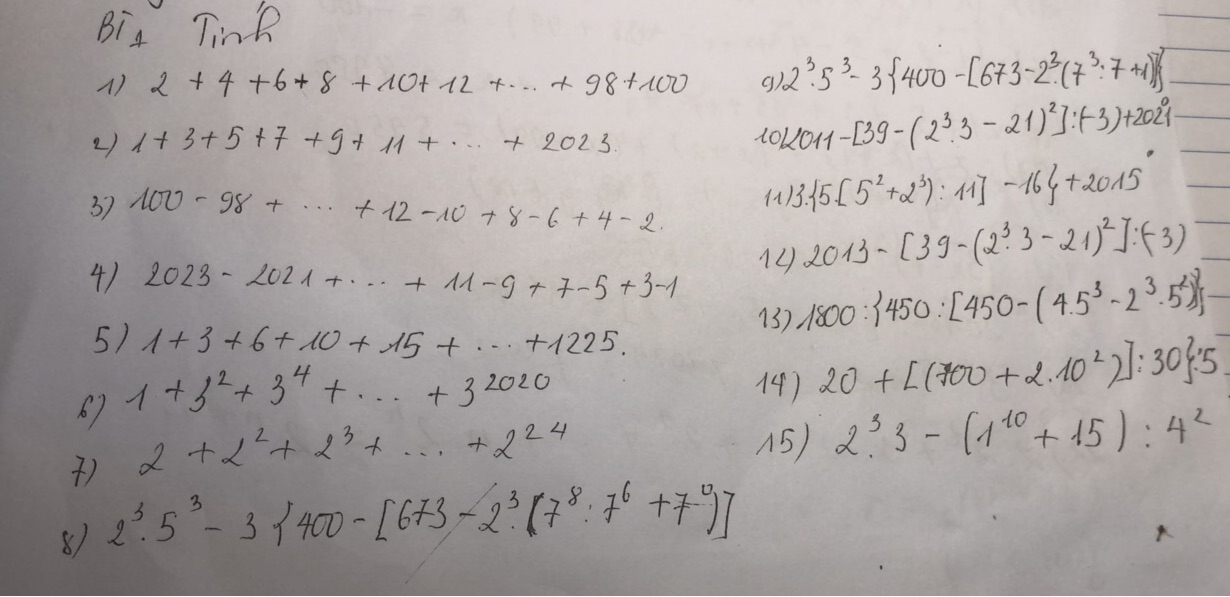 BT1 Tính
1) 2 + 4 + 6 + 8 + 10 + 12 + ... + 98 + 100
2) 1 + 3 + 5 + 7 + 9 + 11 + ... + 2023.
3) 100 - 98 + ... + 12 - 10 + 8 - 6 + 4 - 2.
4) 2023 - 2021 + ... + 11 - 9 + 7 - 5 + 3 - 1
5) 1 + 3 + 6 + 10 + 15 + ... + 1225.
6) 1 + 3² + 3⁴ + ... + 3²⁰²⁰
7) 2 + 2² + 2³ + ... + 2²⁴
8) 2³.5³ - 3{400 - [673 - 2³.(7⁸:7⁶ + 7⁰)]
9) 2³.5³ - 3{400 - [673 - 2³(7³:7+1)]}
10) 2011 - [39 - (2³.3 - 21)²]:(-3) + 2021⁰
11) 3.{5.[5² + 2³) : 11] - 16} + 2015
12) 2013 - [39 - (2³.3 - 21)²]:(-3)
13) 1800 : {450 : [450 - (4.5³ - 2³.5²)]}
14) 20 + [(700 + 2.10²)]:30}:5
15) 2³.3 - (1¹⁰ + 15) : 4²